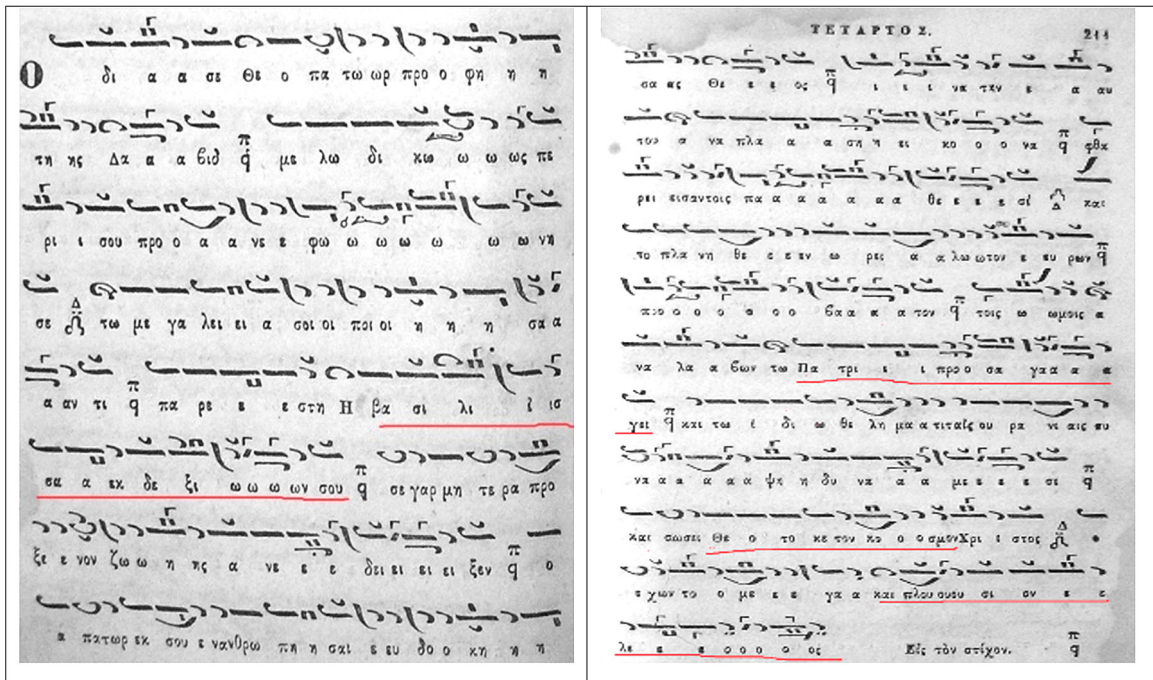 Ο δι α α σε Θε ο πα τω ωρ προ ο φη η η
τη ης Δα α α βιδ π̈ q με λω δι κω ω ω ως πε
ρι ι σου προ ο α α νε ε φω ω ω ω ω ω ω νη
σε Δ τω με γα λει ει α σοι οι ποι οι η η η σα α
α αν τι π q πα ρε ε ε στη Η βα σι λι ι ισ
σα α εκ δε ξι ω ω ω ων σου π q σε γαρ μη τε ρα προ
ξε ε νον ζω ω η ης α νε ε ε δει ει ει ει ξεν π q ο
α πατωρ εκ σου ε νανθρω πη η σαι ε ευ δο ο κη η η
ΤΕΤΑΡΤΟΣ. 211
σα ας Θε ε ε ος π q ι ι ει ι να την ε α αυ
του α να πλα α α ση η ει κο ο ο να π q φθα
ρει εισαντοις πα α α α α α α θε ε ε ε σί Δ και
το πλα νη θε ε ε εν ω ρει α α λω ωτον ε ευ ρων π q
προ ο ο ο ο ο ο ο βα α α α τον π q τοις ω ωμοις α
να λα α βων τω Πα τρι ι ι προ ο σα γα α α α
γει π q και τω ι δι ω θε λη μα α τι ταίς ου ρα νι αις συ
να α α α α α ψη η δυ να α α με ε ε ε σι π q
και σωσει Θε ο το κε τον κο ο ο σμον Χρι ι στος Δ ο
ε χων το ο με ε ε γα α και πλου ουσυ σι ον ε ε
λε ε ε ε ο ο ο ο ος Εἰς τὸν στίχον. π q